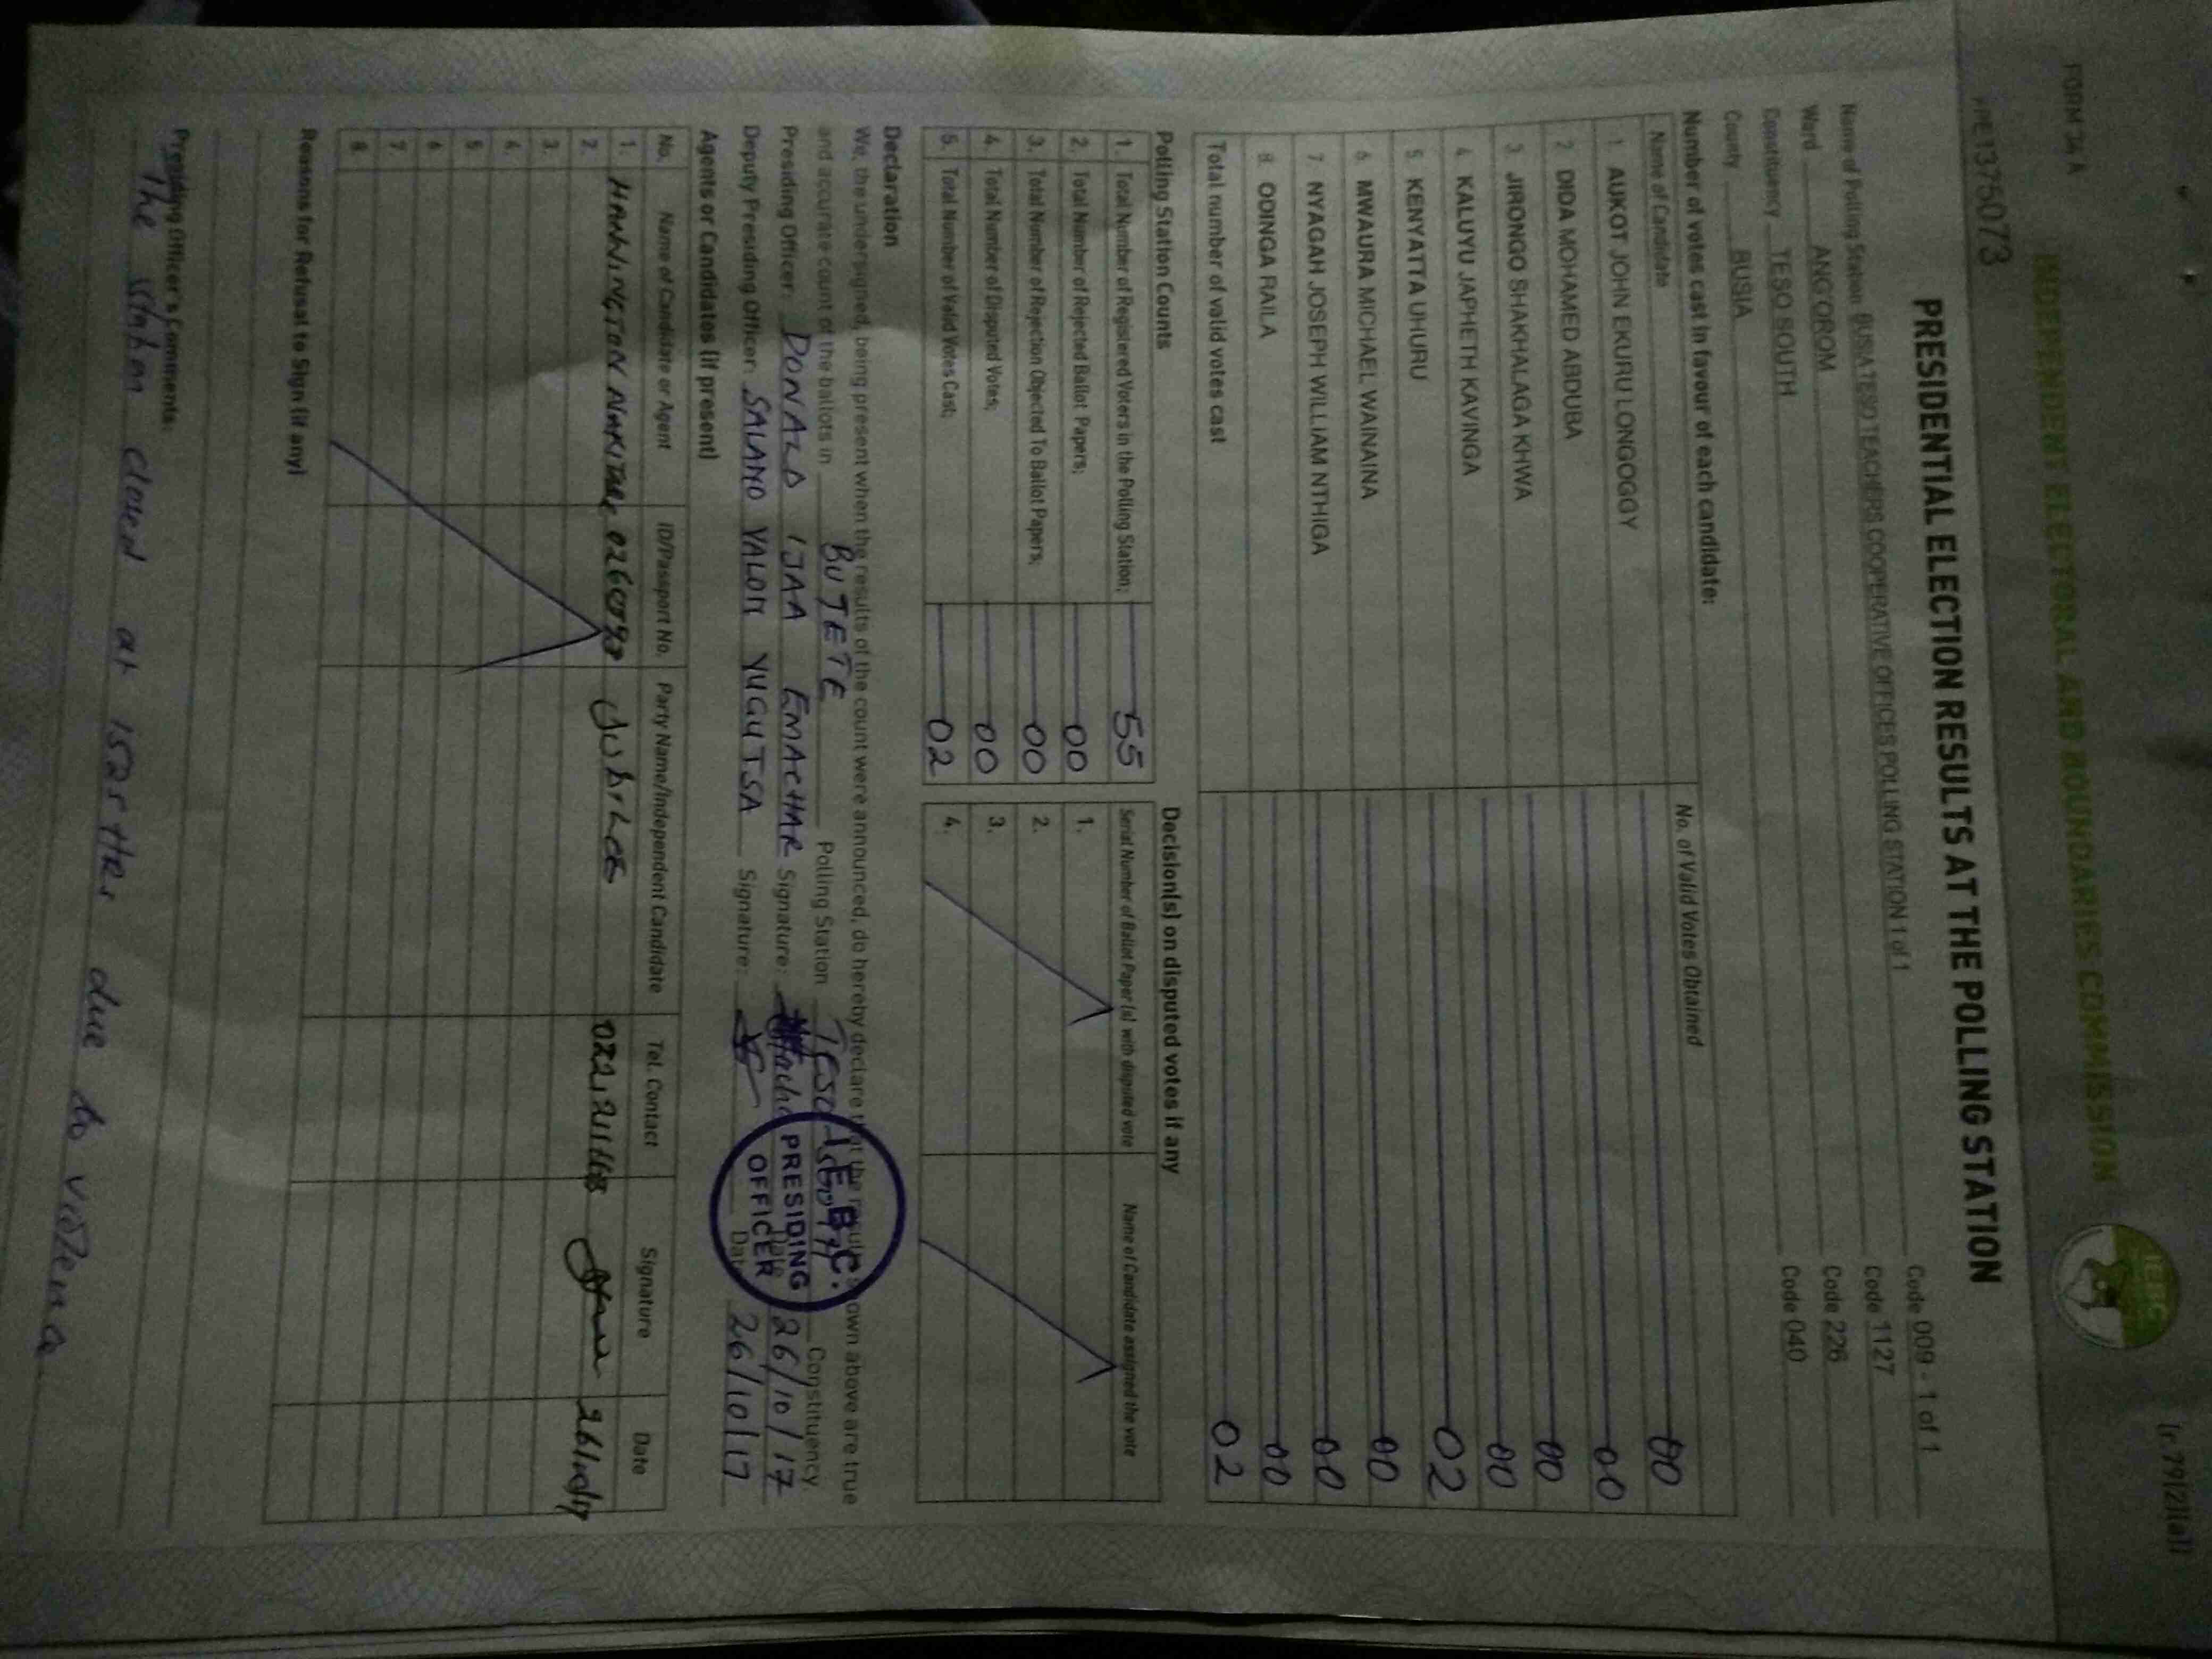 FORM 34 A
(r.79(2)(a))
INDEPENDENT ELECTORAL AND BOUNDARIES COMMISSION
IEBC
PRE1375073
PRESIDENTIAL ELECTION RESULTS AT THE POLLING STATION
Name of Polling Station BUSIA TESO TEACHERS COOPERATIVE OFFICES POLLING STATION 1 of 1 Code 009 - 1 of 1
Ward ANG'OROM Code 1127
Constituency TESO SOUTH Code 226
County BUSIA Code 040
Number of votes cast in favour of each candidate:
Name of Candidate No. of Valid Votes Obtained
1. AUKOT JOHN EKURU LONGOGGY 00
2. DIDA MOHAMED ABDUBA 00
3. JIRONGO SHAKHALAGA KHWA 00
4. KALUYU JAPHETH KAVINGA 00
5. KENYATTA UHURU 02
6. MWAURA MICHAEL WAINAINA 00
7. NYAGAH JOSEPH WILLIAM NTHIGA 00
8. ODINGA RAILA 00
Total number of valid votes cast 02
Polling Station Counts
1. Total Number of Registered Voters in the Polling Station; 55
2. Total Number of Rejected Ballot Papers; 00
3. Total Number of Rejection Objected To Ballot Papers; 00
4. Total Number of Disputed Votes; 00
5. Total Number of Valid Votes Cast; 02
Decision(s) on disputed votes if any
Serial Number of Ballot Paper(s) with disputed vote Name of Candidate assigned the vote
1.
2.
3.
4.
Declaration
We, the undersigned, being present when the results of the count were announced, do hereby declare that the results shown above are true
and accurate count of the ballots in BUTETE Polling Station Constituency
Presiding Officer: DONALD IJAA EMACHAR Signature: Date 26/10/17
Deputy Presiding Officer: SALAMO YALON YUGUTSA Signature: Date 26/10/17
I.E.B.C.
PRESIDING
OFFICER
Agents or Candidates (if present)
No. Name of Candidate or Agent ID/Passport No. Party Name/Independent Candidate Tel. Contact Signature Date
1. HANNINGTON JUBILEE
2.
3.
4.
5.
6.
7.
8.
Reasons for Refusal to Sign (if any)
Presiding Officer's Comments:
The station closed at 1525 Hrs due to violence